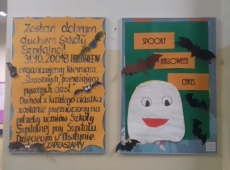 Zostań dobrym
duchem Szkoły
Szpitalnej!
31.10.2018 HALLOWEEN
organizujemy kiermasz
strasznych, przerażająco
pysznych ciast
Dochód z każdego ciastka
zostanie przeznaczony na
potrzeby uczniów Szkoły
Szpitalnej przy Szpitalu
Dziecięcym w Olsztynie.
ZAPRASZAMY
SPOOKY
HALLOWEEN
CAKES